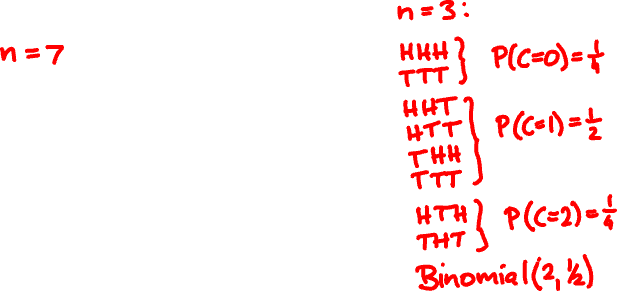 n = 7
n = 3:
HHH
TTT
P(C=0) = 1/4
HHT
HTT
THH
TTT
P(C=1) = 1/2
HTH
THT
P(C=2) = 1/4
Binomial(2, 1/2)